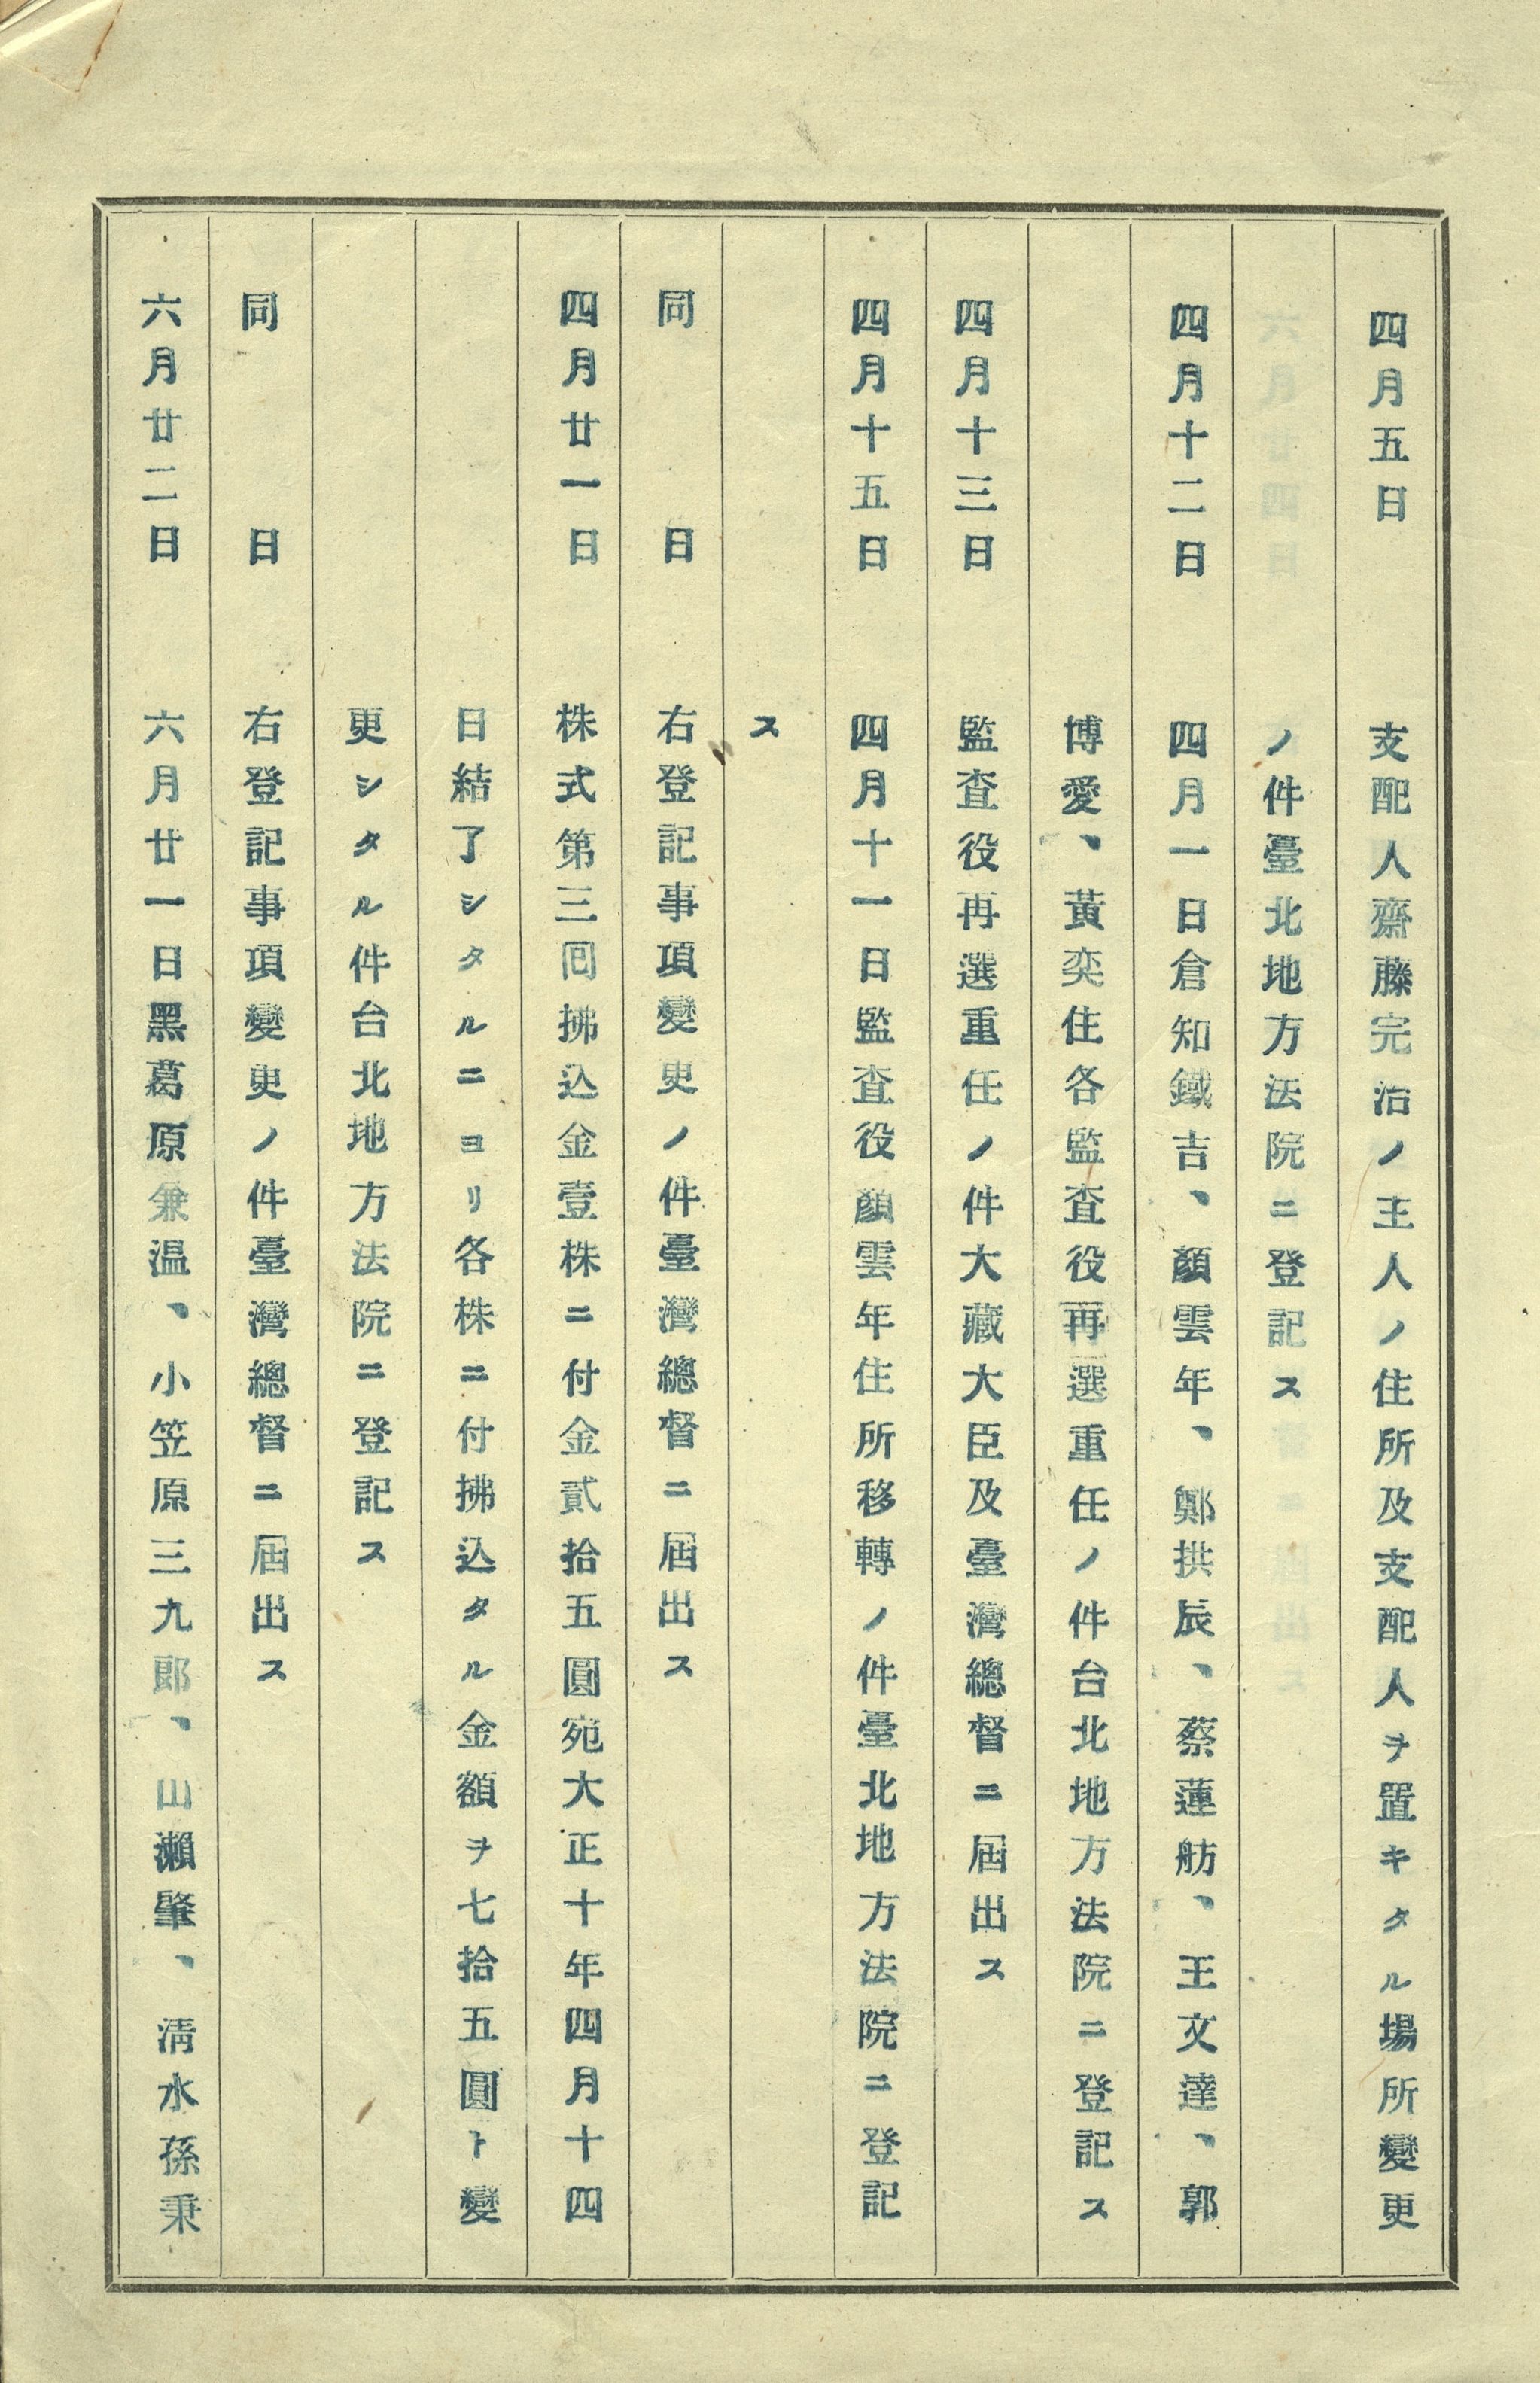 四月五日 支配人齋藤完治ノ主人ノ住所及支配人ヲ置キタル場所變更
ノ件臺北地方法院ニ登記ス
四月十二日 四月一日倉知鐵吉、顏雲年、鄭拱辰、蔡蓮舫、王文達、郭
博愛、黃奕住各監査役再選重任ノ件台北地方法院ニ登記ス
四月十三日 監査役再選重任ノ件大藏大臣及臺灣總督ニ屆出ス
四月十五日 四月十一日監査役顏雲年住所移轉ノ件臺北地方法院ニ登記
ス
同日 右登記事項變更ノ件臺灣總督ニ屆出ス
四月廿一日 株式第三囘拂込金壹株ニ付金貳拾五圓宛大正十年四月十四
日結了シタルニヨリ各株ニ付拂込タル金額ヲ七拾五圓ト變
更シタル件台北地方法院ニ登記ス
同日 右登記事項變更ノ件臺灣總督ニ屆出ス
六月廿二日 六月廿一日黑葛原兼温、小笠原三九郎、山瀨肇、淸水孫秉